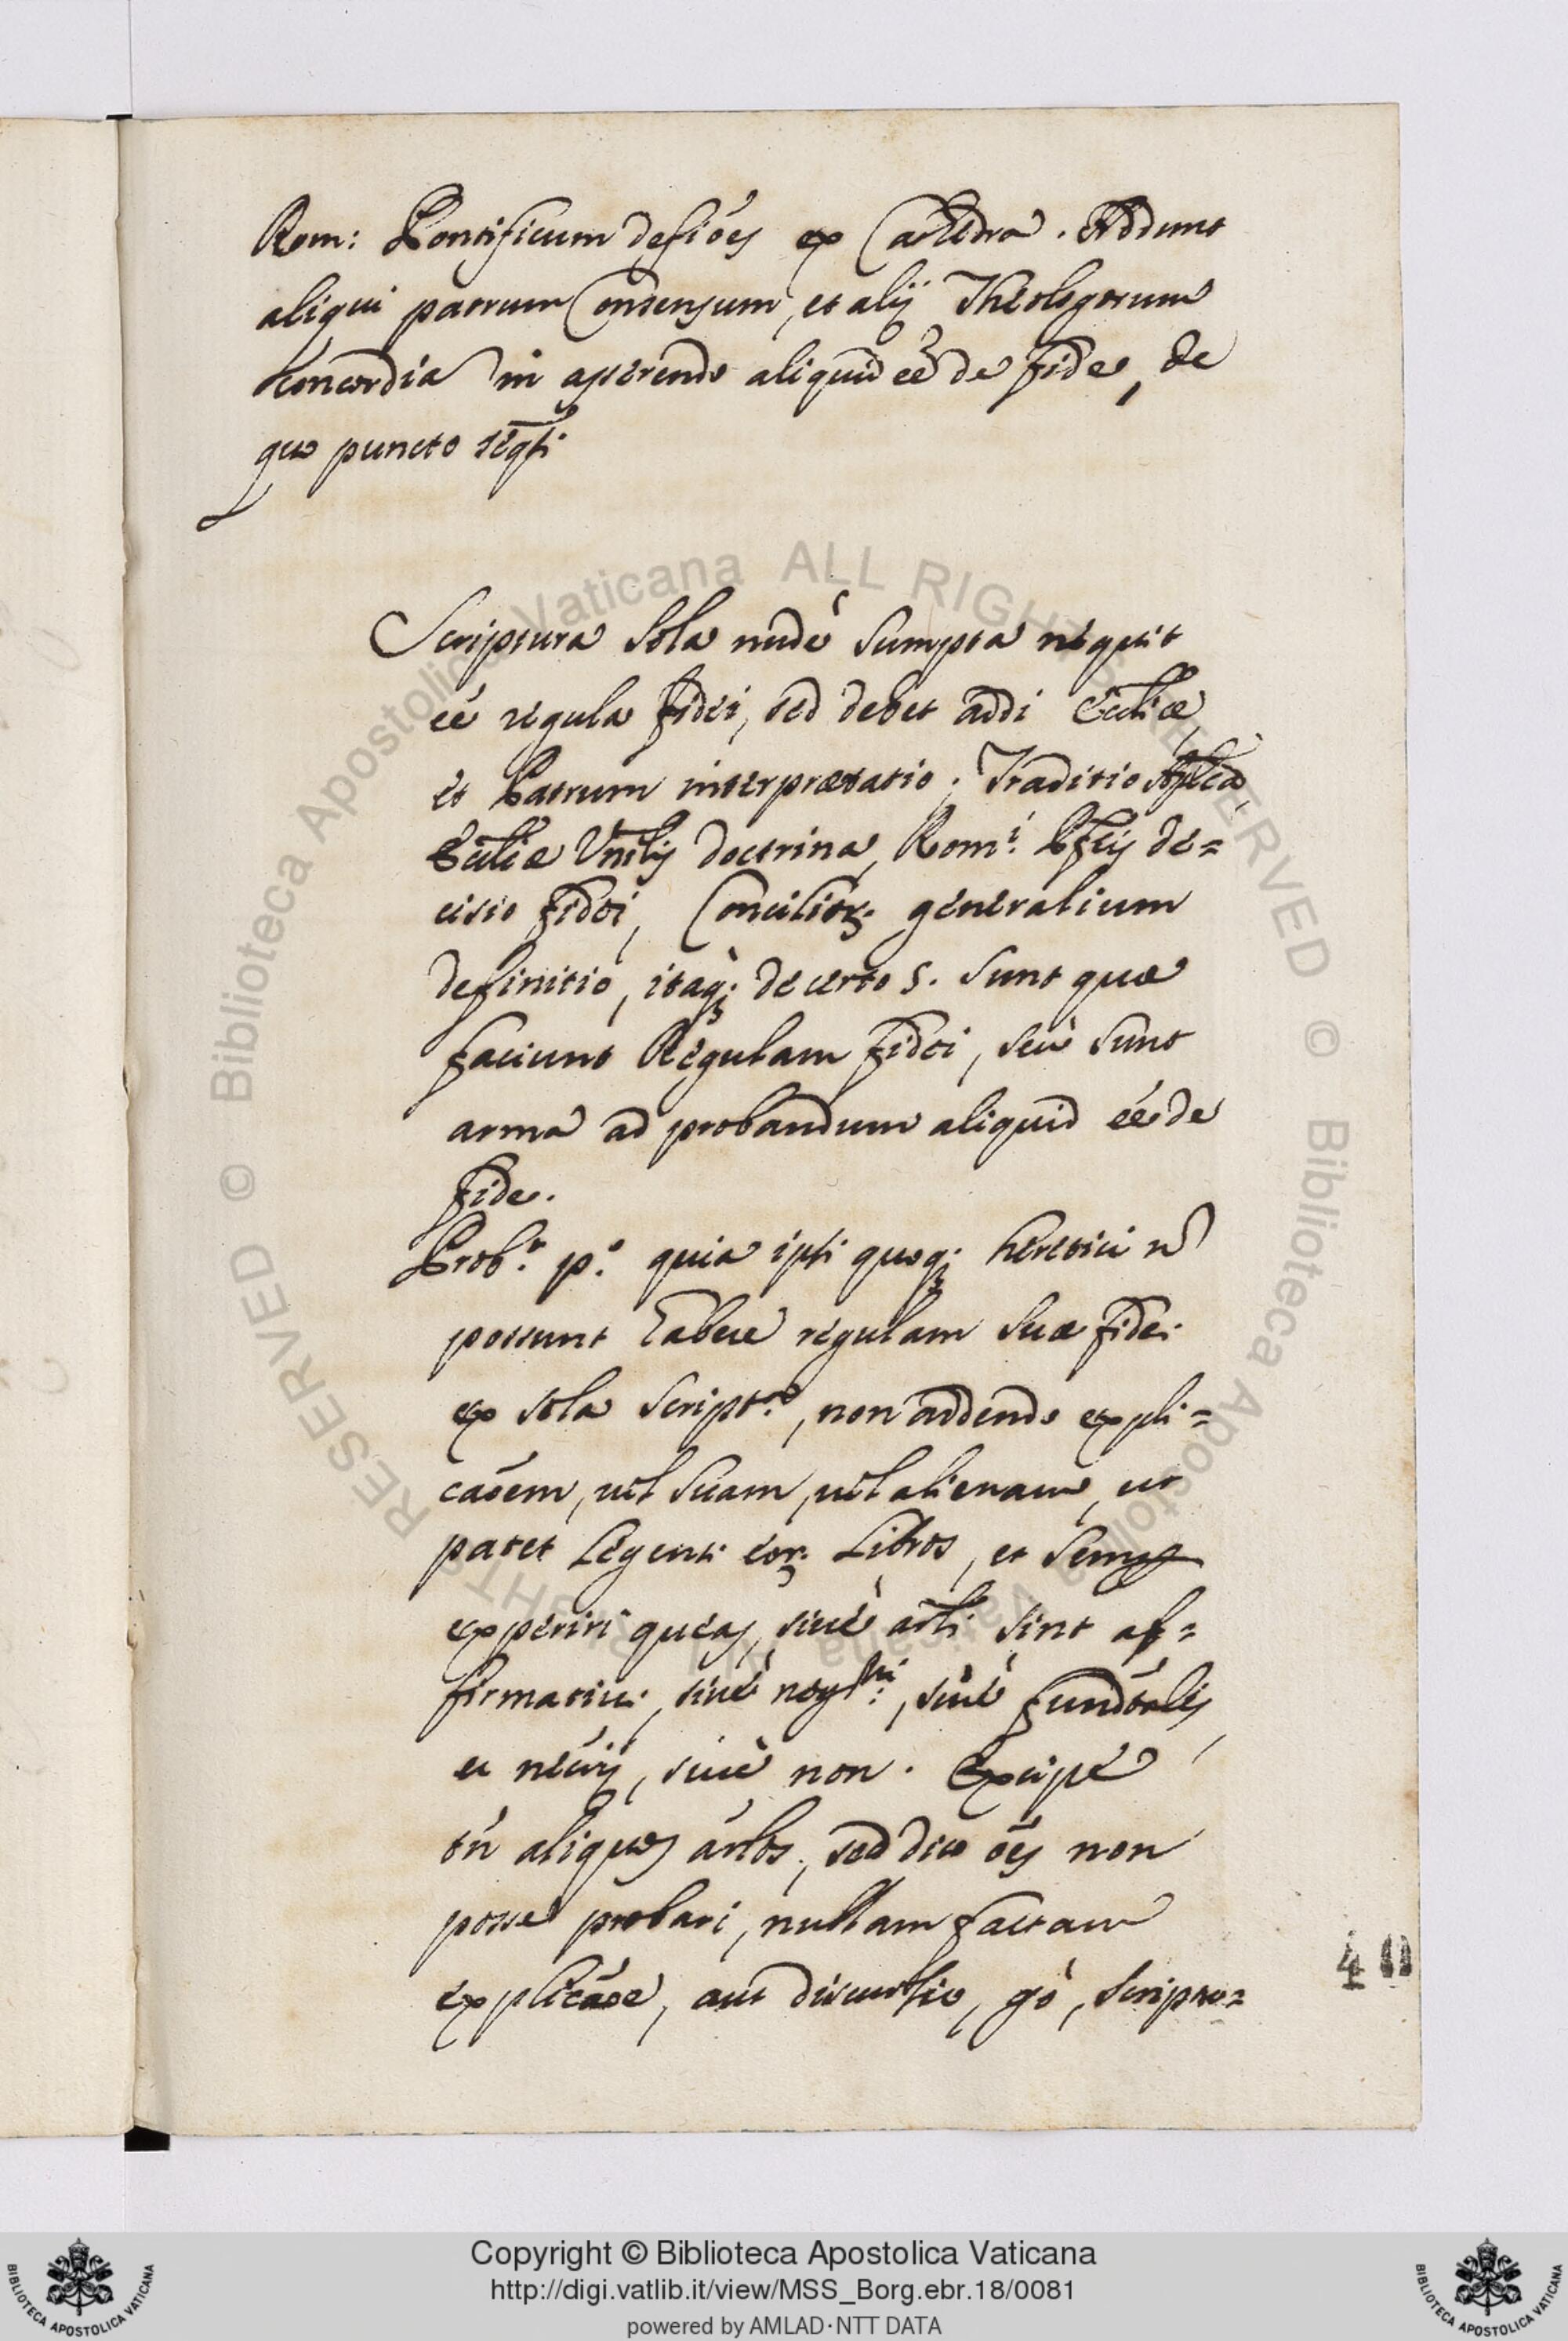 Rom: Pontificum defiões ex Cathedra. Addunt
aliqui patrum Consensum, et alij Theologorum
concordia in asserendo aliquid eé de fide, de
quo puncto seqti
Scriptura sola nudè sumpta nequit
eé regula fidei, sed debet addi Ecctiæ
et Patrum interprætatio; Traditio Aplca,
Ecctiæ Vnilis doctrina, Romi: Pfcis de=
cisio fidei, Conciliorꝝ generalium
definitio, itaq; de certo 5. sunt quæ
faciunt Regulam fidei, seù sunt
arma ad probandum aliquid eé de
fide.
Probr. po. quia ipsi quoq; heretici n
possunt habere regulam suæ fidei
ex sola Scriptra, non addendo expli=
caõem, vel suam, vel alienam, ut
patet legenti eorꝝ Libros, et semp
experiri queas, siuè arli sint af=
firmatiui, siuè negtui:, siuè fundõales
et necrij, siuè non. Excipe
tn̄ aliquos arlos, sed dico oẽs non
posse probari, nullam factam
explicãoe, aut discursio, gò, scriptu=
40
ALL RIGHTS RESERVED © Biblioteca Apostolica Vaticana
Copyright © Biblioteca Apostolica Vaticana
http://digi.vatlib.it/view/MSS_Borg.ebr.18/0081
powered by AMLAD·NTT DATA
BIBLIOTECA APOSTOLICA VATICANA
BIBLIOTECA APOSTOLICA VATICANA